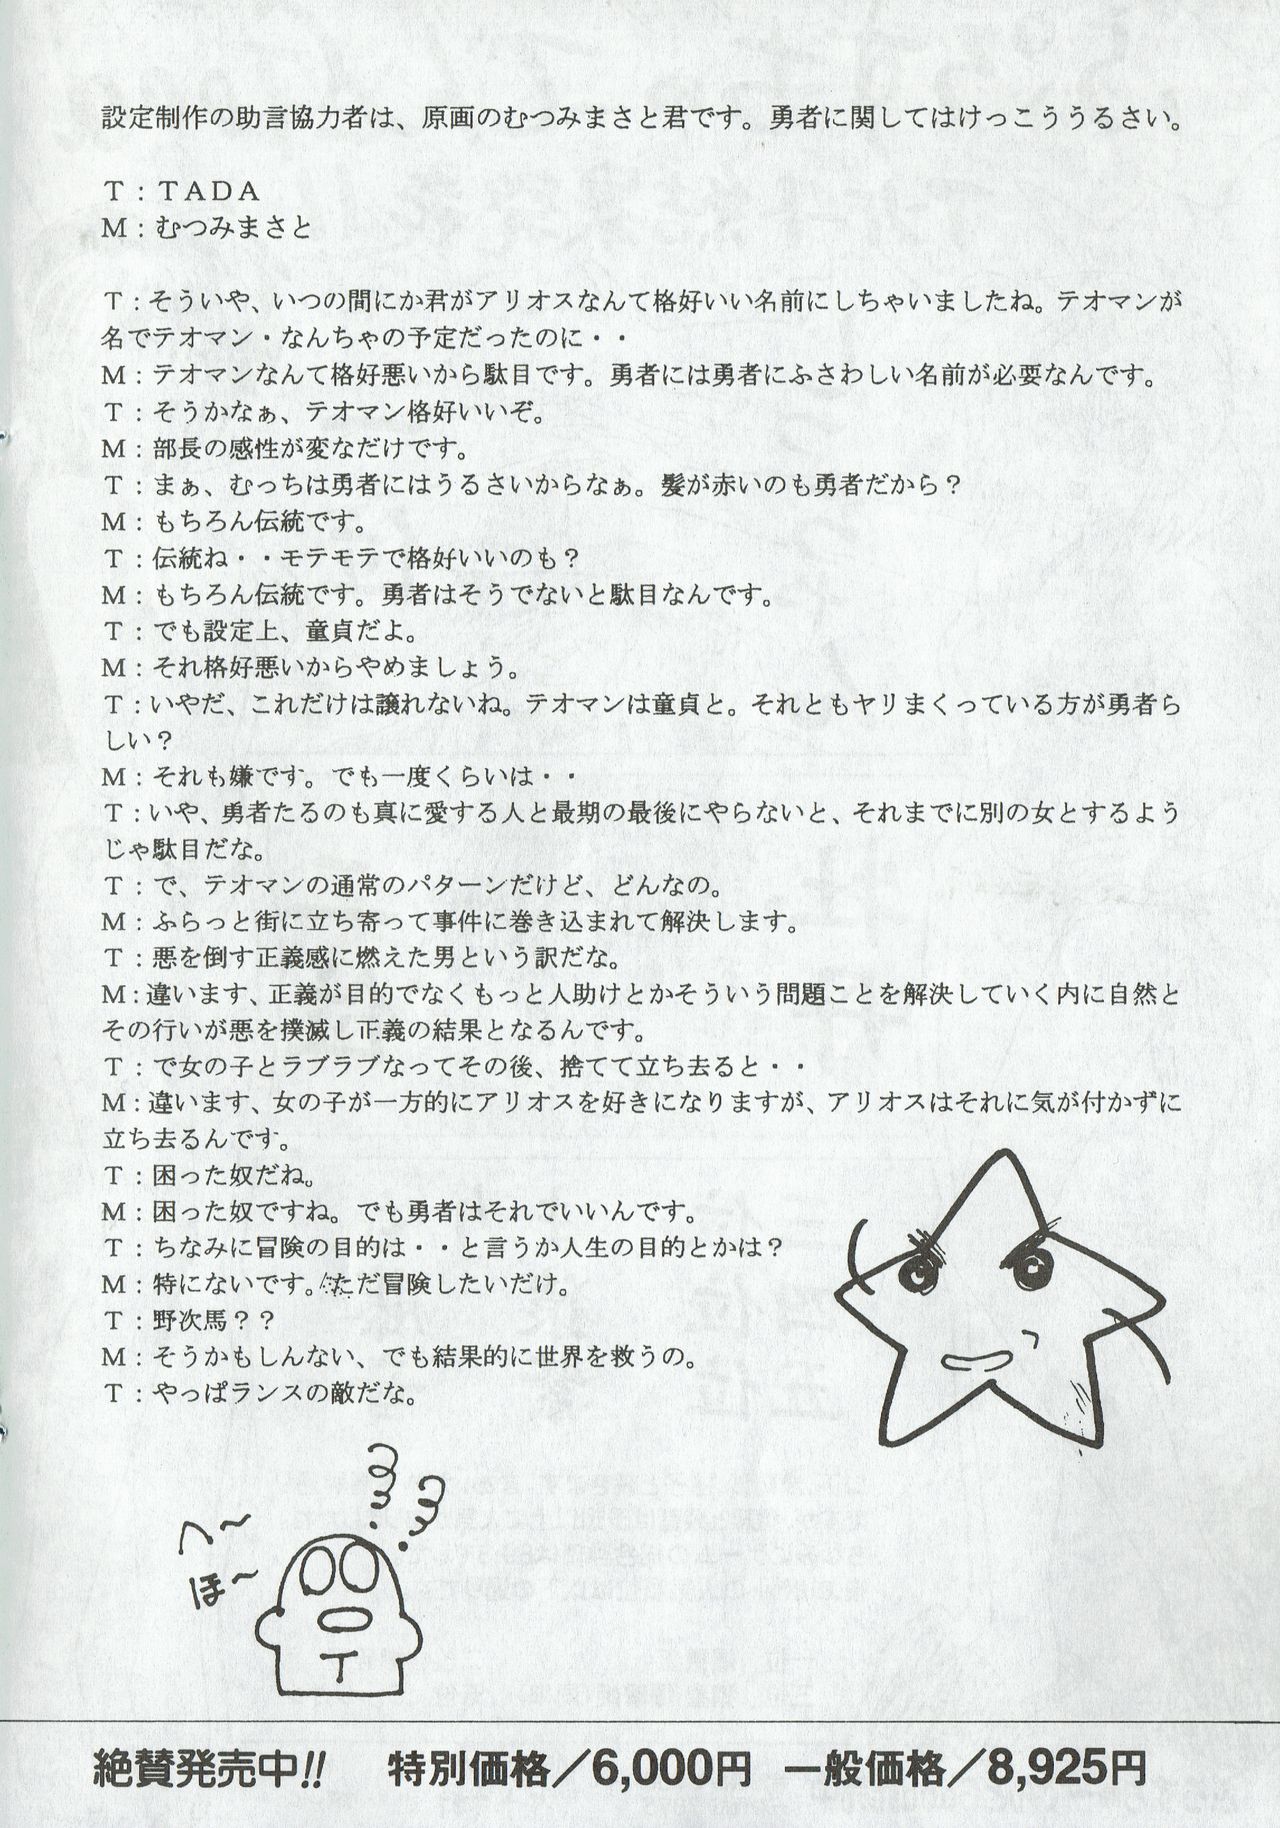 設定制作の助言協力者は、原画のむつみまさと君です。勇者に関してはけっこううるさい。
T：TADA
M：むつみまさと
T：そういや、いつの間にか君がアリオスなんて格好いい名前にしちゃいましたね。テオマンが
名でテオマン・なんちゃの予定だったのに・・
M：テオマンなんて格好悪いから駄目です。勇者には勇者にふさわしい名前が必要なんです。
T：そうかなぁ、テオマン格好いいぞ。
M：部長の感性が変なだけです。
T：まぁ、むっちは勇者にはうるさいからなぁ。髪が赤いのも勇者だから？
M：もちろん伝統です。
T：伝統ね・・モテモテで格好いいのも？
M：もちろん伝統です。勇者はそうでないと駄目なんです。
T：でも設定上、童貞だよ。
M：それ格好悪いからやめましょう。
T：いやだ、これだけは譲れないね。テオマンは童貞と。それともヤリまくっている方が勇者ら
しい？
M：それも嫌です。でも一度くらいは・・
T：いや、勇者たるのも真に愛する人と最期の最後にやらないと、それまでに別の女とするよう
じゃ駄目だな。
T：で、テオマンの通常のパターンだけど、どんなの。
M：ふらっと街に立ち寄って事件に巻き込まれて解決します。
T：悪を倒す正義感に燃えた男という訳だな。
M：違います、正義が目的でなくもっと人助けとかそういう問題ことを解決していく内に自然と
その行いが悪を撲滅し正義の結果となるんです。
T：で女の子とラブラブなってその後、捨てて立ち去ると・・
M：違います、女の子が一方的にアリオスを好きになりますが、アリオスはそれに気が付かずに
立ち去るんです。
T：困った奴だね。
M：困った奴ですね。でも勇者はそれでいいんです。
T：ちなみに冒険の目的は・・と言うか人生の目的とかは？
M：特にないです。ただ冒険したいだけ。
T：野次馬？？
M：そうかもしんない、でも結果的に世界を救うの。
T：やっぱランスの敵だな。
へ〜
ほ〜
T
絶賛発売中!! 特別価格／6,000円 一般価格／8,925円